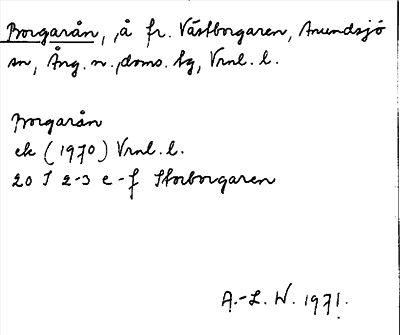 Borgarån, å fr. Västborgaren, Anundsjö
sn, Ång. n. doms. tg, Vrnl. l.
Borgarån
ek (1970) Vrnl. l.
20 I 2-3 e-f Storborgaren
A.-L. W. 1971.